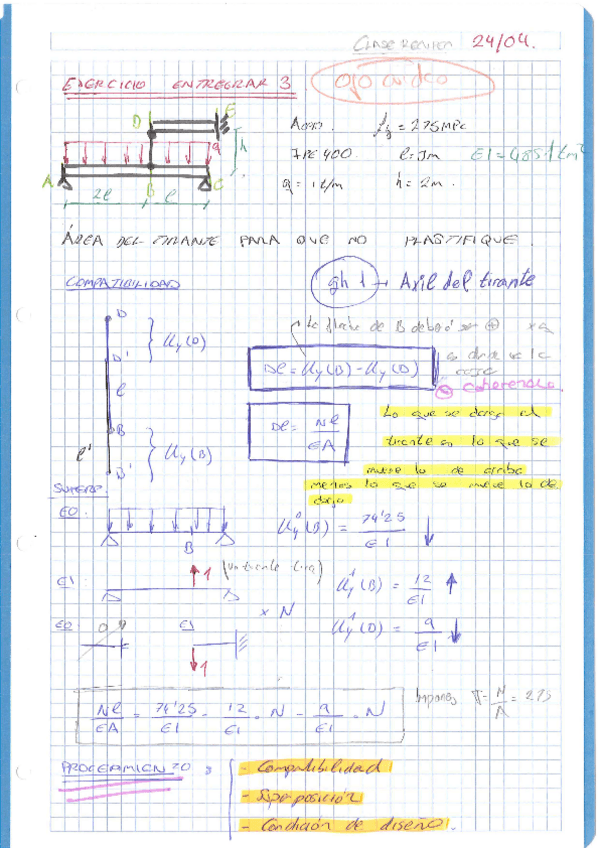 CLASE 24/04.
EJERCICIO ENTREGAR 3
D E
h
q
A B C
2l l
Acero fy = 275 MPa
IPE 400 l = 3m EI =
q = 1 t/m h = 2m.
ÁREA DEL TIRANTE PARA QUE NO PLASTIFIQUE.
COMPATIBILIDAD
gh 1 → Axil del tirante
D
D'
Uy(D)
l
B
B'
Uy(B)
l'
La flecha de B deberá ser ⊕
Dl = Uy(B) - Uy(D)
coherencia
Dl = Nl / EA
Lo que se alarga el
tirante es lo que se
mueve lo de arriba
menos lo que se mueve lo de
abajo
SUPERP.
E0
B
Uy⁰(B) = 74'25 / EI ↓
1 (un tirante tira)
E1
Uy¹(B) = 12 / EI ↑
x N
E0 0 E1
Uy¹(D) = 9 / EI ↓
1
Nl / EA = 74'25 / EI - 12 / EI · N - 9 / EI · N
Imponer σ = N / A = 275
PROCEDIMIENTO:
- Compatibilidad
- Superposición
- Condición de diseño.